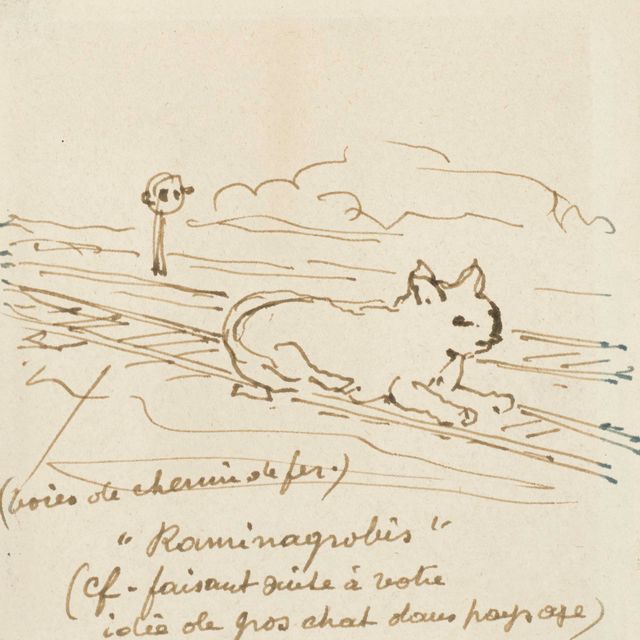 (voies de chemin de fer.)
"Raminagrobis"
(cf. faisant suite à votre
idée de gros chat dans paysage)